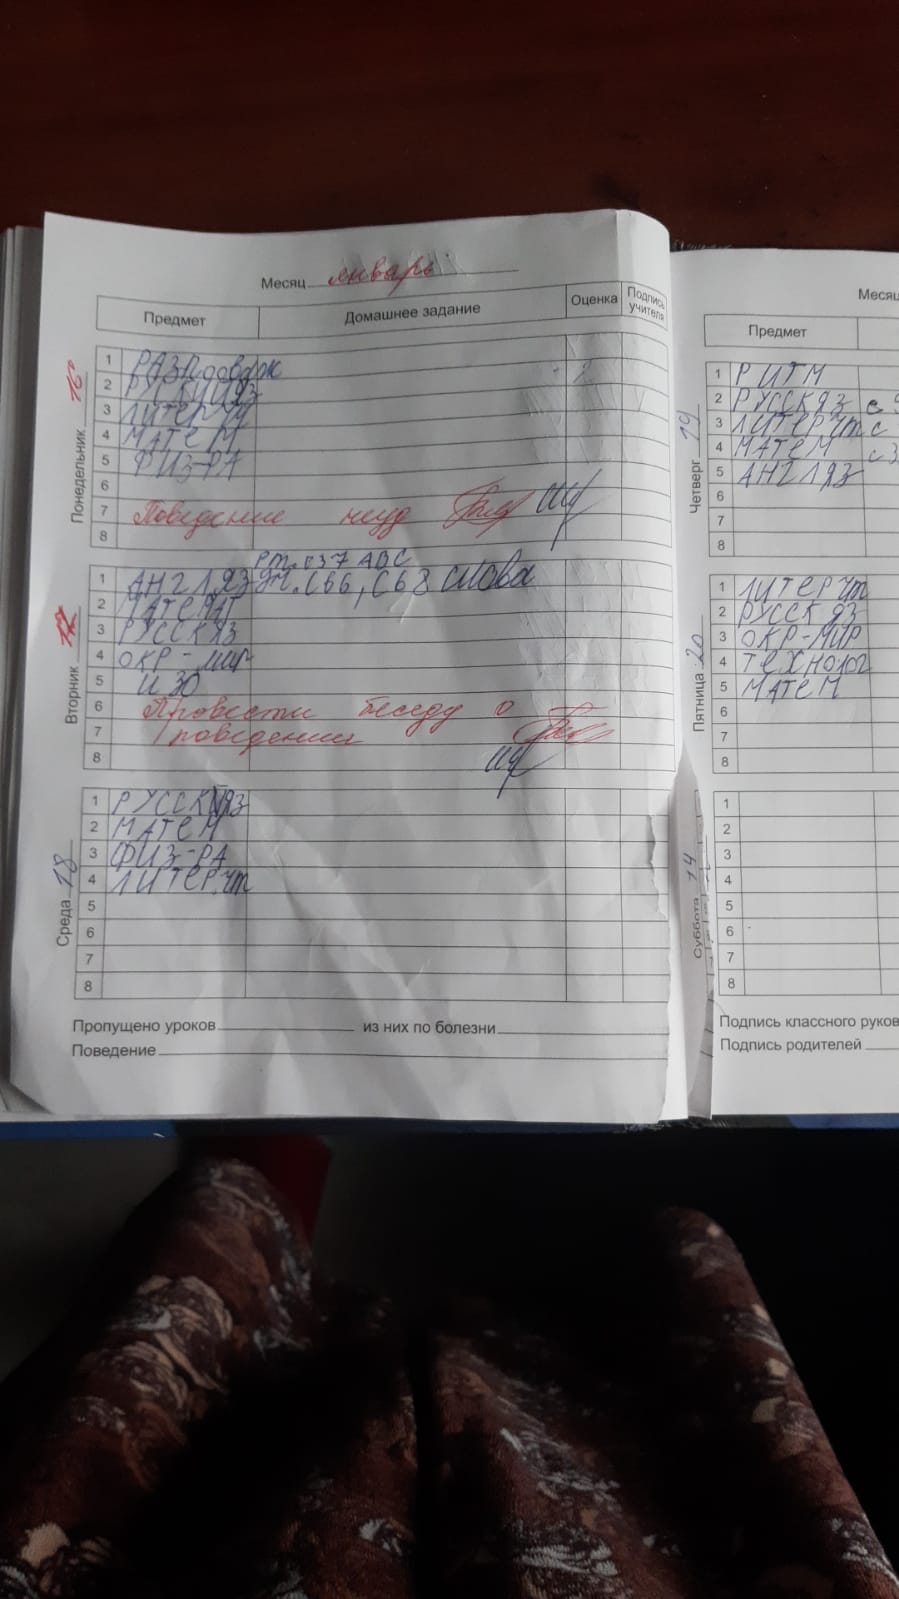 Месяц январь
Предмет Домашнее задание Оценка Подпись учителя
Понедельник 16
1 РАЗГОВОВАЖ
2 РУССКИЙЯЗ
3 ЛИТЕР ЧТ
4 МАТЕМ
5 ФИЗ-РА
6
7 Поведение неуд
8
Вторник 17
РТ. с37 АВС
1 АНГЛ.ЯЗ уч. с66, с68 слова
2 МАТЕМАТ
3 РУССК ЯЗ
4 ОКР-МИР
5 ИЗО
6 Провести беседу о
7 поведении
8
Среда 18
1 РУССКИЙЯЗ
2 МАТЕМ
3 ФИЗ-РА
4 ЛИТЕР.ЧТ
5
6
7
8
Пропущено уроков из них по болезни
Поведение
Месяц
Предмет
Четверг 19
1 РИТМ
2 РУССКЯЗ с
3 ЛИТЕРЧТ с
4 МАТЕМ с3
5 АНГЛЯЗ
6
7
8
Пятница 20
1 ЛИТЕРЧТ
2 РУССК ЯЗ
3 ОКР-МИР
4 ТЕХНОЛОГ
5 МАТЕМ
6
7
8
Суббота
1
2
3
4
5
6
7
8
Подпись классного руков
Подпись родителей